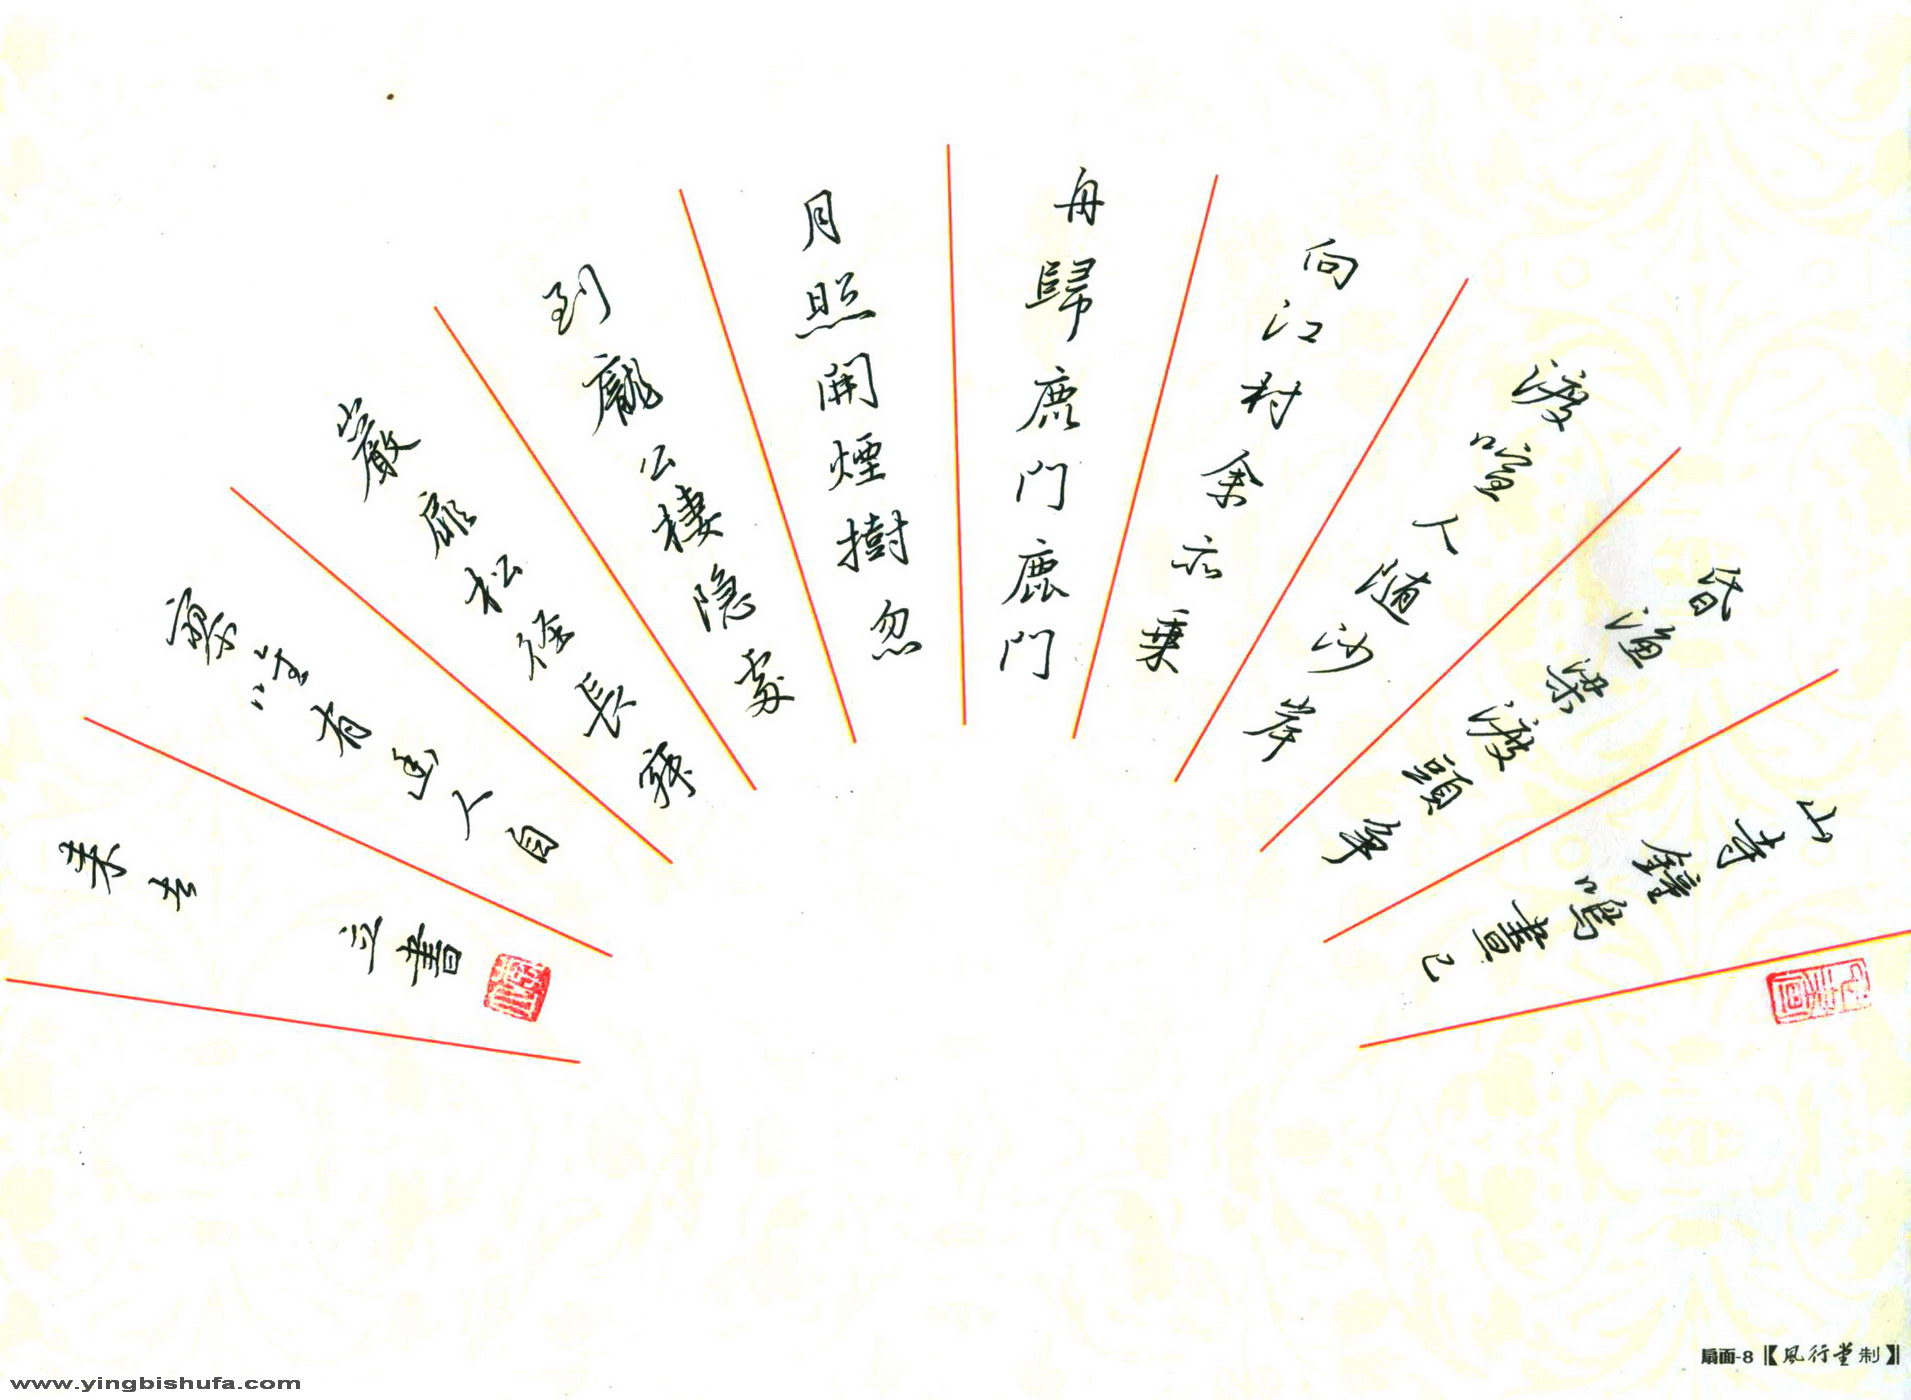 山寺鐘鳴晝已
昏漁梁渡頭争
渡喧人随沙岸
向江村余亦乗
舟歸鹿門鹿門
月照開煙樹忽
到龐公棲隐處
巖扉松徑長寂
寥唯有幽人自
来去 立書
扇面-8【風行堂制】
www.yingbishufa.com